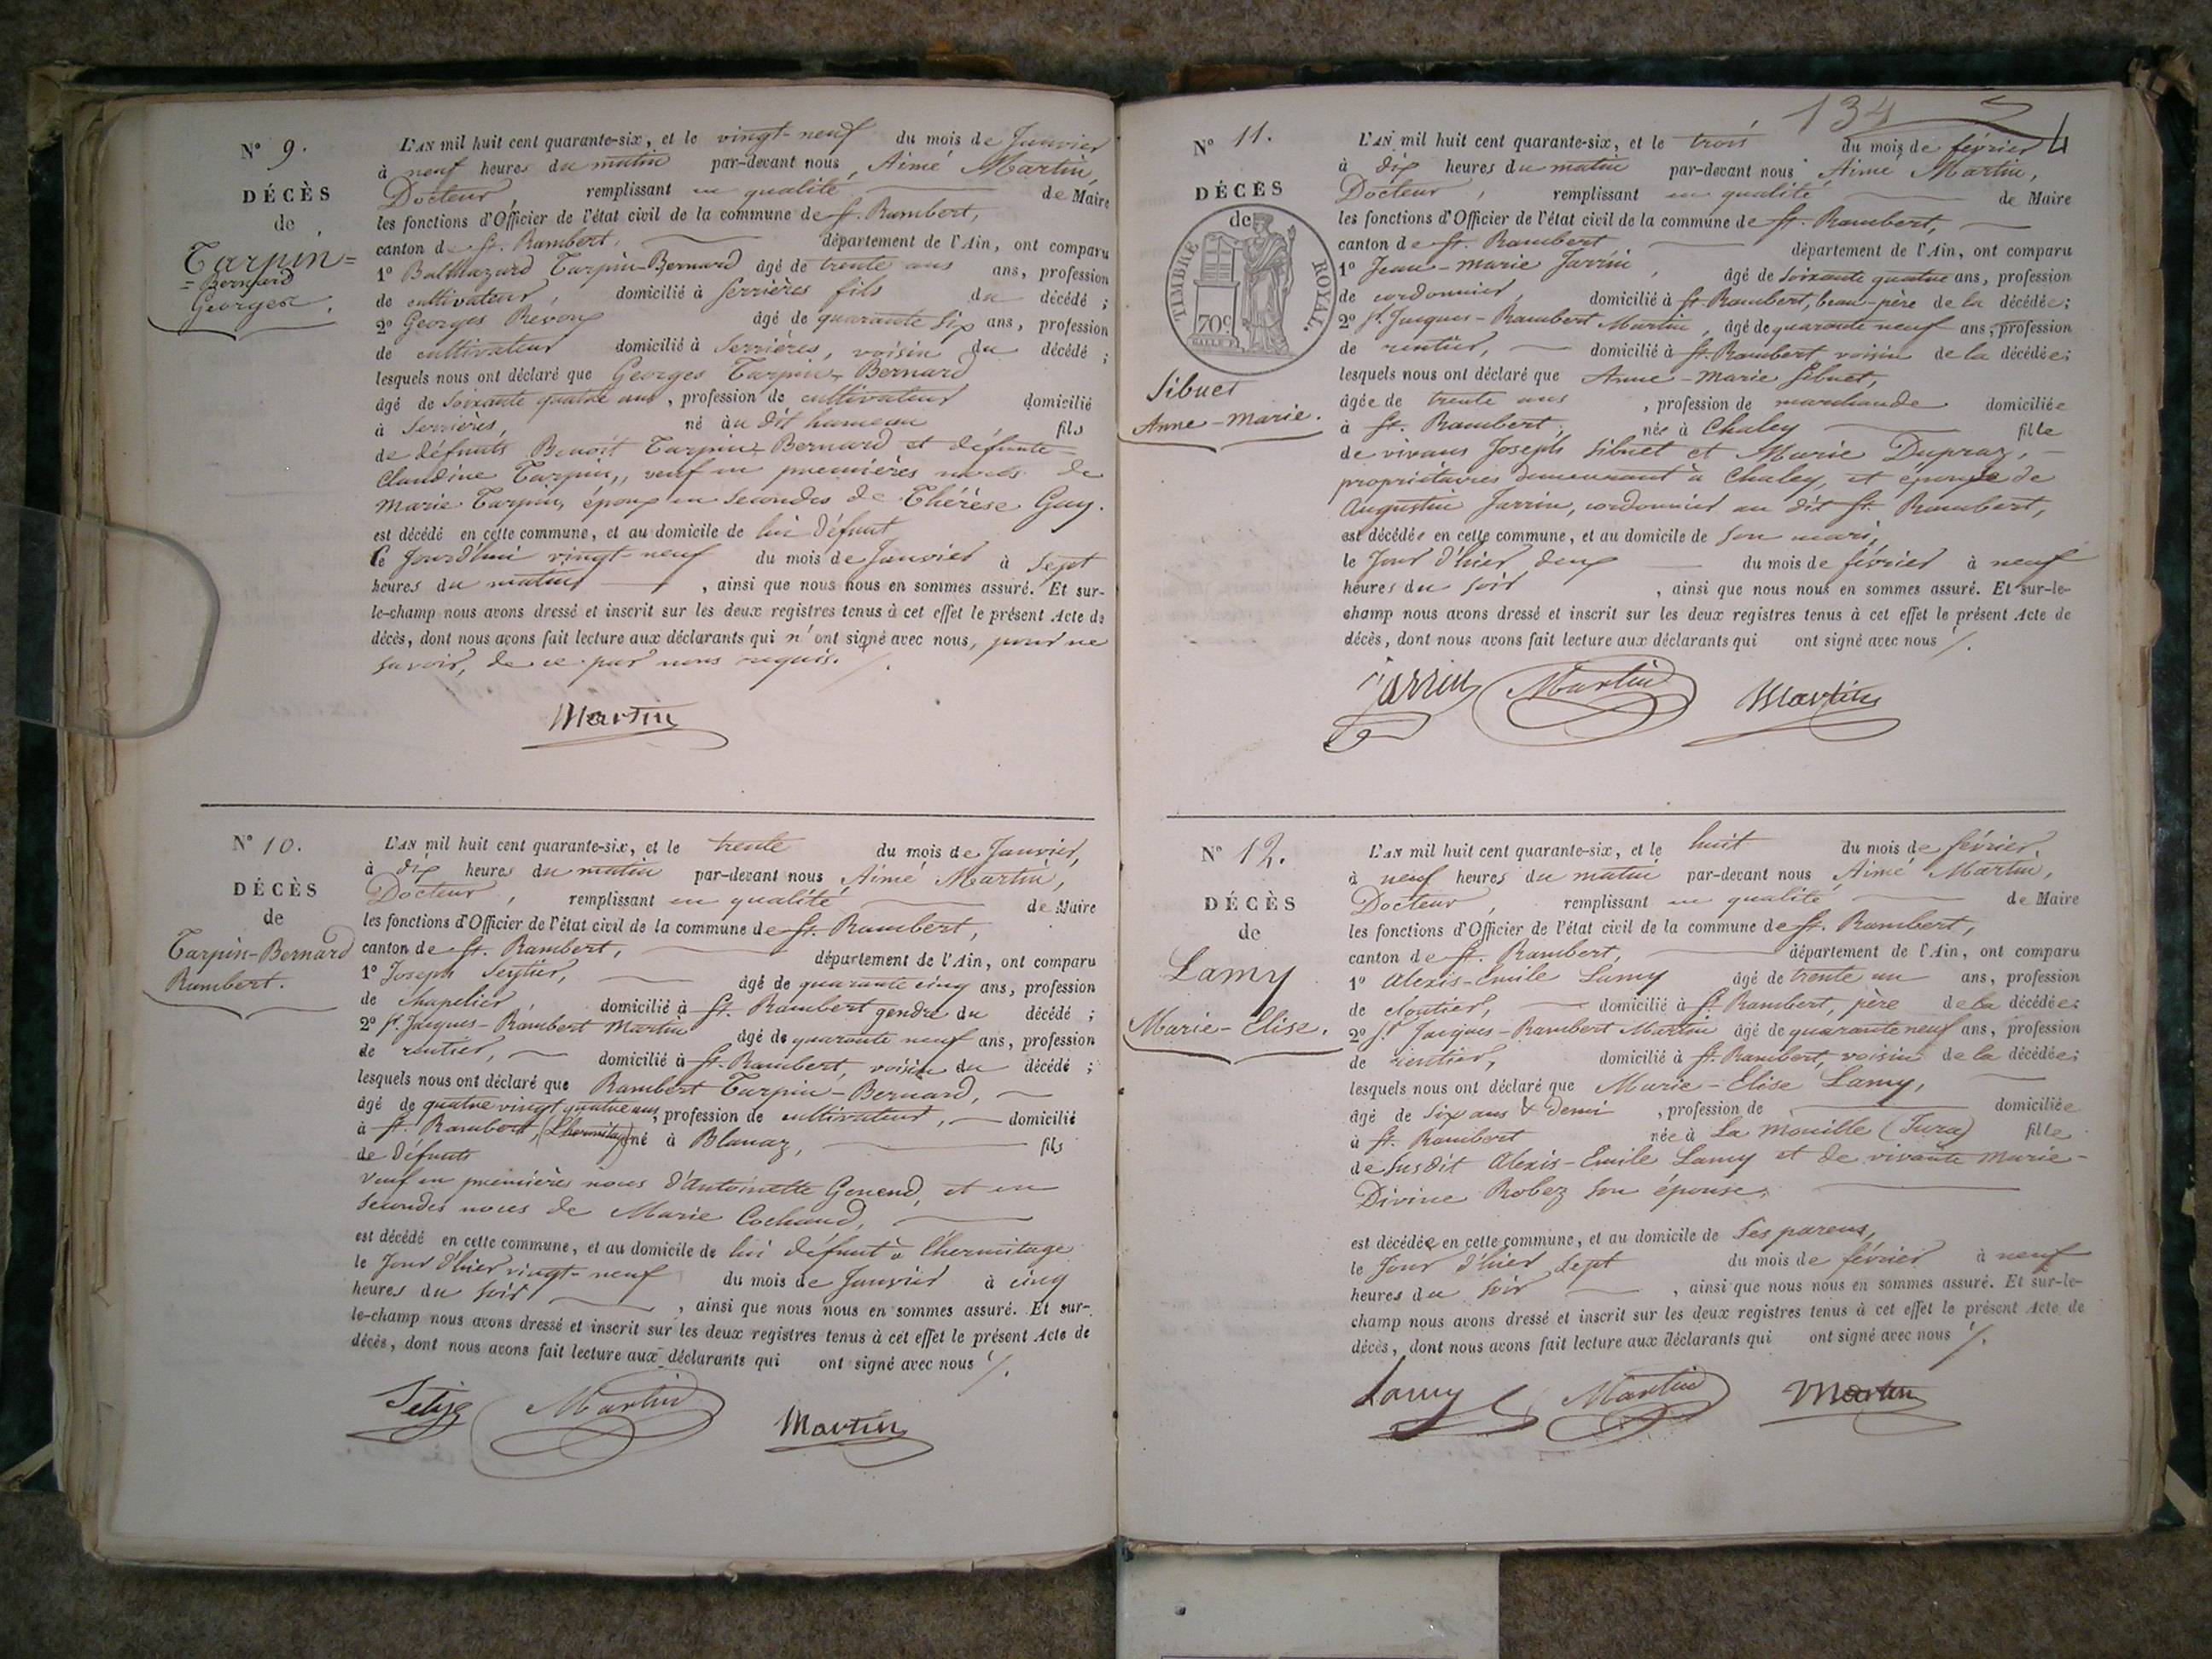 N° 9.
DÉCÈS
de
Tarpin=
=Bernard
Georges.
L'AN mil huit cent quarante-six, et le vingt-neuf du mois de Janvier
à neuf heures du matin par-devant nous, Aimé Martin,
Docteur remplissant en qualité de Maire
les fonctions d'Officier de l'état civil de la commune de St. Rambert,
canton de St. Rambert, département de l'Ain, ont comparu
1° Balthazard Tarpin-Bernard âgé de trente ans ans, profession
de cultivateur, domicilié à Serrières fils du décédé ;
2° Georges Prevoux âgé de quarante six ans, profession
de cultivateur domicilié à Serrières, voisin du décédé ;
lesquels nous ont déclaré que Georges Tarpin-Bernard
âgé de soixante quatre ans, profession de cultivateur domicilié
à Serrières, né au dit hameau fils
de défunts Benoît Tarpin-Bernard et défunte
Claudine Tarpin, veuf en premières noces de
Marie Tarpin, époux en secondes de Thérèse Guy.
est décédé en cette commune, et au domicile de lui défunt
Ce Jourd'hui vingt-neuf du mois de Janvier à sept
heures du matin, ainsi que nous nous en sommes assuré. Et sur-
le-champ nous avons dressé et inscrit sur les deux registres tenus à cet effet le présent Acte de
décès, dont nous avons fait lecture aux déclarants qui n'ont signé avec nous, pour ne
savoir, de ce par nous requis.
Martin
N° 10.
DÉCÈS
de
Tarpin-Bernard
Rambert.
L'AN mil huit cent quarante-six, et le trente du mois de Janvier,
à dix heures du matin par-devant nous Aimé Martin,
Docteur, remplissant en qualité de Maire
les fonctions d'Officier de l'état civil de la commune de St. Rambert,
canton de St. Rambert, département de l'Ain, ont comparu
1° Joseph âgé de quarante cinq ans, profession
de Chapelier, domicilié à St. Rambert gendre du décédé ;
2° St. Jacques-Rambert Martin âgé de quarante neuf ans, profession
de rentier, domicilié à St. Rambert, voisin du décédé ;
lesquels nous ont déclaré que Rambert Tarpin-Bernard,
âgé de quatre vingt quatre ans, profession de cultivateur, domicilié
à St. Rambert, (L'hermitage) né à Blanaz, fils
de défunts
veuf en premières noces d'Antoinette Genend, et en
secondes noces de Marie Cochaud,
est décédé en cette commune, et au domicile de lui défunt à L'hermitage
le Jour d'hier vingt-neuf du mois de Janvier à cinq
heures du soir, ainsi que nous nous en sommes assuré. Et sur-
le-champ nous avons dressé et inscrit sur les deux registres tenus à cet effet le présent Acte de
décès, dont nous avons fait lecture aux déclarants qui ont signé avec nous /.
Martin Martin
134
4
N° 11.
DÉCÈS
de
TIMBRE ROYAL.
70c.
Sibuet
Anne-Marie.
L'AN mil huit cent quarante-six, et le trois du mois de février
à dix heures du matin par-devant nous Aimé Martin,
Docteur, remplissant en qualité de Maire
les fonctions d'Officier de l'état civil de la commune de St. Rambert,
canton de St. Rambert département de l'Ain, ont comparu
1° Jean-Marie Jarrin, âgé de soixante quatre ans, profession
de cordonnier, domicilié à St. Rambert, beau-père de la décédée ;
2° St. Jacques-Rambert Martin, âgé de quarante neuf ans, profession
de rentier, domicilié à St. Rambert voisin de la décédée ;
lesquels nous ont déclaré que Anne-Marie Sibuet,
âgée de trente ans, profession de marchande domiciliée
à St. Rambert, née à Chaley fille
de vivans Joseph Sibuet et Marie Dupraz,
propriétaires demeurant à Chaley, et épouse de
Augustin Jarrin, cordonnier au dit St. Rambert,
est décédée en cette commune, et au domicile de son mari,
le Jour d'hier deux du mois de février à neuf
heures du soir, ainsi que nous nous en sommes assuré. Et sur-le-
champ nous avons dressé et inscrit sur les deux registres tenus à cet effet le présent Acte de
décès, dont nous avons fait lecture aux déclarants qui ont signé avec nous /.
Jarrin Martin Martin
N° 12.
DÉCÈS
de
Lamy
Marie-Elise.
L'AN mil huit cent quarante-six, et le huit du mois de février
à neuf heures du matin par-devant nous Aimé Martin,
Docteur, remplissant en qualité de Maire
les fonctions d'Officier de l'état civil de la commune de St. Rambert,
canton de St. Rambert, département de l'Ain, ont comparu
1° Alexis-Emile Lamy âgé de trente un ans, profession
de cloutier, domicilié à St. Rambert, père de la décédée ;
2° St. Jacques-Rambert Martin âgé de quarante neuf ans, profession
de rentier, domicilié à St. Rambert, voisin de la décédée ;
lesquels nous ont déclaré que Marie-Elise Lamy,
âgé de six ans & demi, profession de domiciliée
à St. Rambert née à La Mouille (Jura) fille
de susdit Alexis-Emile Lamy et de vivante Marie-
Divine Robez son épouse,
est décédée en cette commune, et au domicile de ses parens,
le Jour d'hier sept du mois de février à neuf
heures du soir, ainsi que nous nous en sommes assuré. Et sur-le-
champ nous avons dressé et inscrit sur les deux registres tenus à cet effet le présent Acte de
décès, dont nous avons fait lecture aux déclarants qui ont signé avec nous /.
Lamy Martin Martin